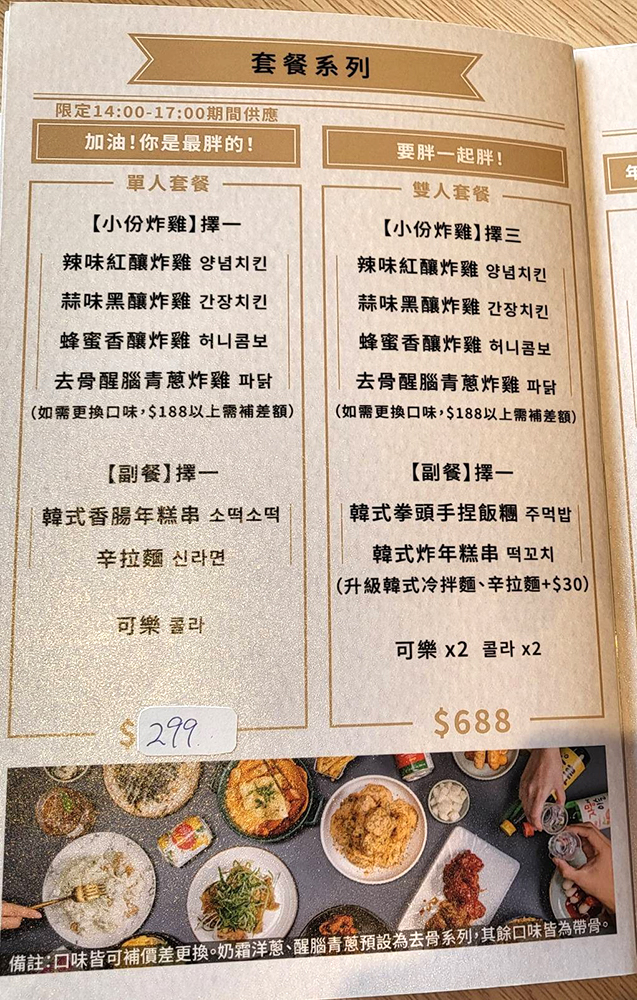 套餐系列
限定14:00-17:00期間供應
加油!你是最胖的!
單人套餐
【小份炸雞】擇一
辣味紅釀炸雞 양념치킨
蒜味黑釀炸雞 간장치킨
蜂蜜香釀炸雞 허니콤보
去骨醒腦青蔥炸雞 파닭
(如需更換口味,$188以上需補差額)
【副餐】擇一
韓式香腸年糕串 소떡소떡
辛拉麵 신라면
可樂 콜라
$299
要胖一起胖!
雙人套餐
【小份炸雞】擇三
辣味紅釀炸雞 양념치킨
蒜味黑釀炸雞 간장치킨
蜂蜜香釀炸雞 허니콤보
去骨醒腦青蔥炸雞 파닭
(如需更換口味,$188以上需補差額)
【副餐】擇一
韓式拳頭手捏飯糰 주먹밥
韓式炸年糕串 떡꼬치
(升級韓式冷拌麵、辛拉麵+$30)
可樂 x2 콜라 x2
$688
備註:口味皆可補價差更換。奶霜洋蔥、醒腦青蔥預設為去骨系列,其餘口味皆為帶骨。